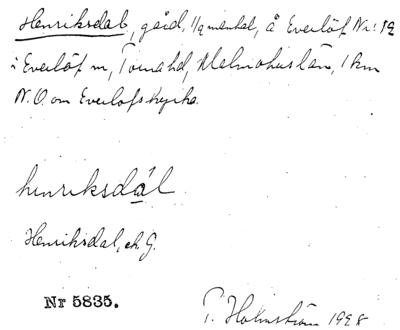 Henriksdal, gård, 1/2 mantal, å Everlöf Nr: 12
i Everlöf sn, Torna hd, Malmöhus län, 1 km
N.O. om Everlöfs kyrka.
henriksdál
Henriksdal, ch. G.
Nr 5835.
T. Holmström 1928